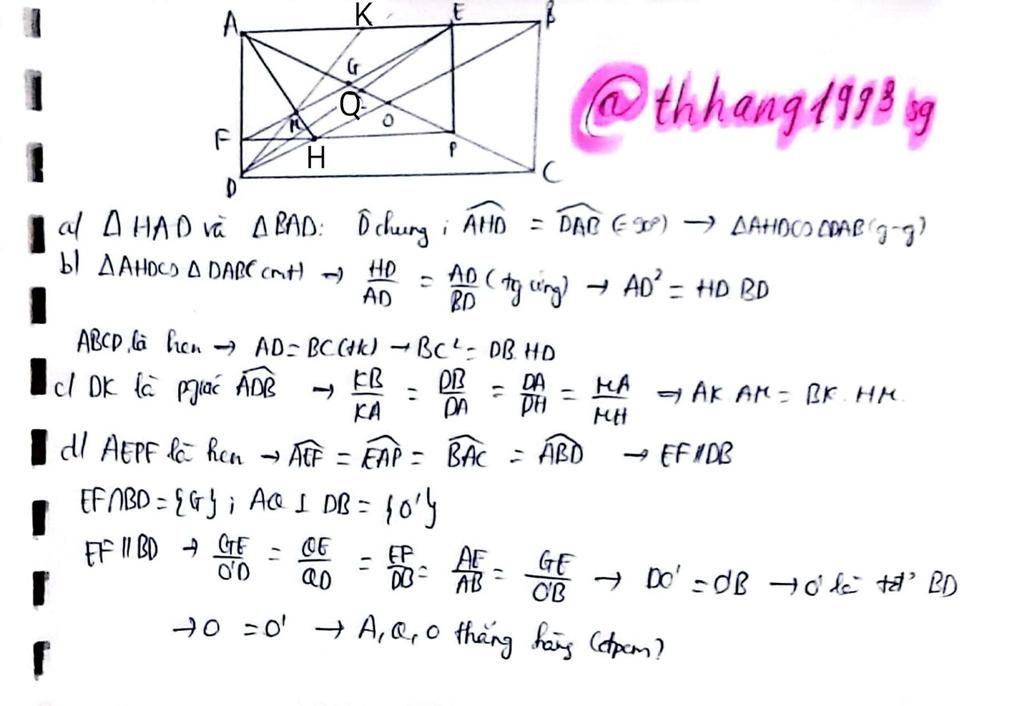 A K E B
G
Q O
F H P
D C
@thhang1993 sg
a/ Δ HAD và Δ BAD: D̂ chung ; AHD = DAB (= 90°) → ΔAHD ∽ ΔDAB (g-g)
b) ΔAHD ∽ Δ DAB (cmt) → HD/AD = AD/BD (tg ứng) → AD² = HD BD
ABCD là hcn → AD = BC (t/c) → BC² = DB. HD
c/ DK là pgiác ADB → KB/KA = DB/DA = DA/DH = MA/MH → AK AM = BK. HM.
d/ AEPF là hcn → AEF = EAP = BAC = ABD → EF // DB
EF∩BD = {G} ; AQ ⊥ DB = {O'}
EF // BD → GE/O'D = QE/QD = EF/DB = AE/AB = GE/O'B → DO' = O'B → O' là tđ' BD
→ O = O' → A, Q, O thẳng hàng (đpcm)